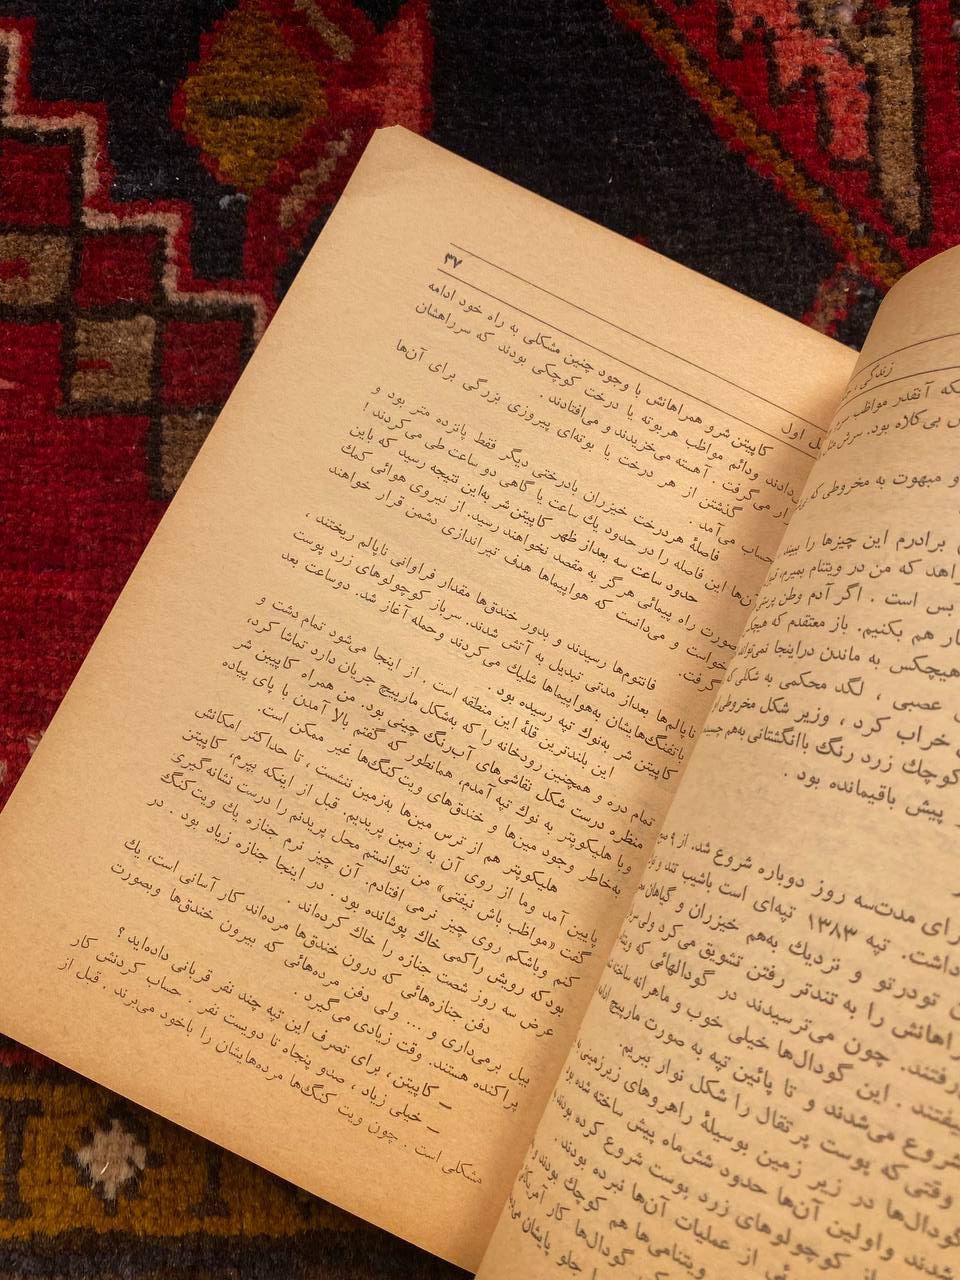 ۳۷
فصل اول
کاپیتن شرو همراهانش با وجود چنین مشکلی به راه خود ادامه
دادند ودائم مواظب هربوته یا درخت کوچکی بودند که سرراهشان
قرار می‌گرفت . آهسته می‌خزیدند و می‌افتادند .
گذشتن از هر درخت یا بوته‌ای پیروزی بزرگی برای آن‌ها
حساب می‌آمد .
فاصلهٔ هردرخت خیزران بادرختی دیگر فقط پانزده متر بود و
آن‌ها این فاصله را در حدود یك ساعت یا گاهی دو ساعت طی می‌کردند !
حدود ساعت سه بعداز ظهر کاپیتن شر به‌این نتیجه رسید که باین
صورت راه پیمائی هر گز به مقصد نخواهند رسید. از نیروی هوائی کمك
خواست و می‌دانست که هواپیماها هدف تیراندازی دشمن قرار خواهند
گرفت.
فانتوم‌ها رسیدند و بدور خندق‌ها مقدار فراوانی ناپالم ریختند ،
ناپالم‌ها بعداز مدتی تبدیل به آتش شدند. سرباز کوچولوهای زرد پوست
باتفنگ‌هایشان به‌هواپیماها شلیك می‌کردند وحمله آغاز شد. دوساعت بعد
کاپیتن شر به‌نوك تپه رسیده بود .
این بلندترین قلهٔ این منطقه است . از اینجا می‌شود تمام دشت و
تمام دره و همچنین رودخانه را که به‌شکل مارپیچ جریان دارد تماشا کرد،
منظره درست شکل نقاشی‌های آب‌رنگ چینی بود. من همراه کاپیتن شر
وبا هلیکوپتر به نوك تپه آمدم، همانطور که گفتم بالا آمدن با پای پیاده
به‌خاطر وجود مین‌ها و خندق‌های ویت‌کنگ‌ها غیر ممکن است.
هلیکوپتر هم از ترس مین‌ها به‌زمین ننشست ، تا حداکثر امکانش
پایین آمد وما از روی آن به زمین پریدیم. قبل از اینکه بپرم، کاپیتن
گفت «مواظب باش نیفتی» من نتوانستم محل پریدنم را درست نشانه‌گیری
کنم وباشکم روی چیز نرمی افتادم. آن چیز نرم جنازه یك ویت‌کنگ
بودکه رویش راکمی خاك پوشانده بود . در اینجا جنازه زیاد بود . در
عرض سه روز شصت جنازه را خاك کرده‌اند .
دفن جنازه‌هائی که درون خندق‌ها مرده‌اند کار آسانی است، یك
بیل برمی‌داری و ... ولی دفن مرده‌هائی که بیرون خندق‌ها وبصورت
پراکنده هستند. وقت زیادی می‌گیرد .
ــ کاپیتن ، برای تصرف این تپه چند نفر قربانی داده‌اید ؟
ــ خیلی زیاد ، صدو پنجاه تا دویست نفر . حساب کردنش کار
مشکلی است . چون ویت کنگ‌ها مرده‌هایشان را باخود می‌برند . قبل از
زندگی،
که آنقدر مواظب
بی‌کلاه بود.
و مبهوت به مخروطی که
برادرم این چیزها را ببیند
که من در ویتنام بمیرم،
بس است . اگر آدم وطن
هم بکنیم. باز معتقدم که
هیچکس به ماندن دراینجا
عصبی ، لگد محکمی به شکلی که
خراب کرد ، وزیر شکل مخروطی
کوچك زرد رنگ باانگشتانی به‌هم
پیش باقیمانده بود .
برای مدت‌سه روز دوباره شروع شد. از ۹
داشت. تپه ۱۳۸۳ تپه‌ای است باشیب تند و
تودرتو و نزدیك به‌هم خیزران و گیاهان
را به تندتر رفتن تشویق می‌کرد ولی
چون می‌ترسیدند در گودالهائی که
بیفتند . این گودال‌ها خیلی خوب و ماهرانه ساخته
شروع می‌شدند و تا پائین تپه به صورت مارپیچ
وقتی که پوست پرتقال را شکل نوار ببریم.
گودال‌ها در زیر زمین بوسیلهٔ راهروهای زیرزمینی
شدند واولین آن‌ها حدود شش‌ماه پیش ساخته شده
کوچولوهای زرد پوست شروع کرده بودند
از عملیات آن‌ها نبرده بودند .
ویتنامی‌ها هم کوچك بودند و
گودال‌ها کار
جلو پایشان